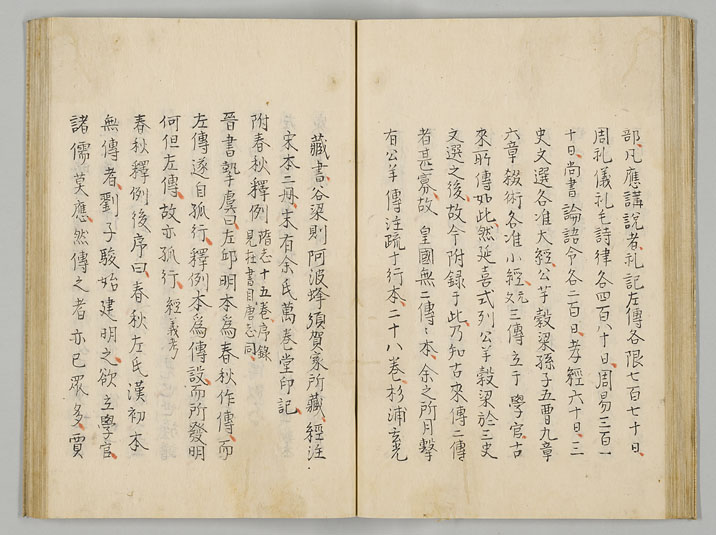 部、凡應講說者、礼記左傳各限七百七十日、
周礼儀礼毛詩律各四百八十日、周易三百一
十日、尚書論語令各二百日、孝經六十日、三
史文選各准大經、公羊穀梁孫子五曹九章
六章綴術各准小經、元文 三傳立于學官、古
來所傳如此、然延喜式列公羊穀梁於三史
文選之後、故今附録于此、乃知古來傳二傳
者甚寡、故 皇國無二傳古本、余之所目撃
有公羊傳注疏十行本二十八卷、杉浦玄光
藏書、谷梁則阿波蜂須賀家所藏、經注
宋本二册、末有余氏萬卷堂印記、
附春秋釋例 隋志十五卷、序録
見在書目唐志同、
晉書摯虞曰左邱明本為春秋作傳、而
左傳遂自孤行、釋例本為傳設、而所發明
何但左傳、故亦孤行、經義考
春秋釋例後序曰春秋左氏漢初本
無傳者、劉子駿始建明之、欲立學官
諸儒莫應、然傳之者亦已眾多、賈